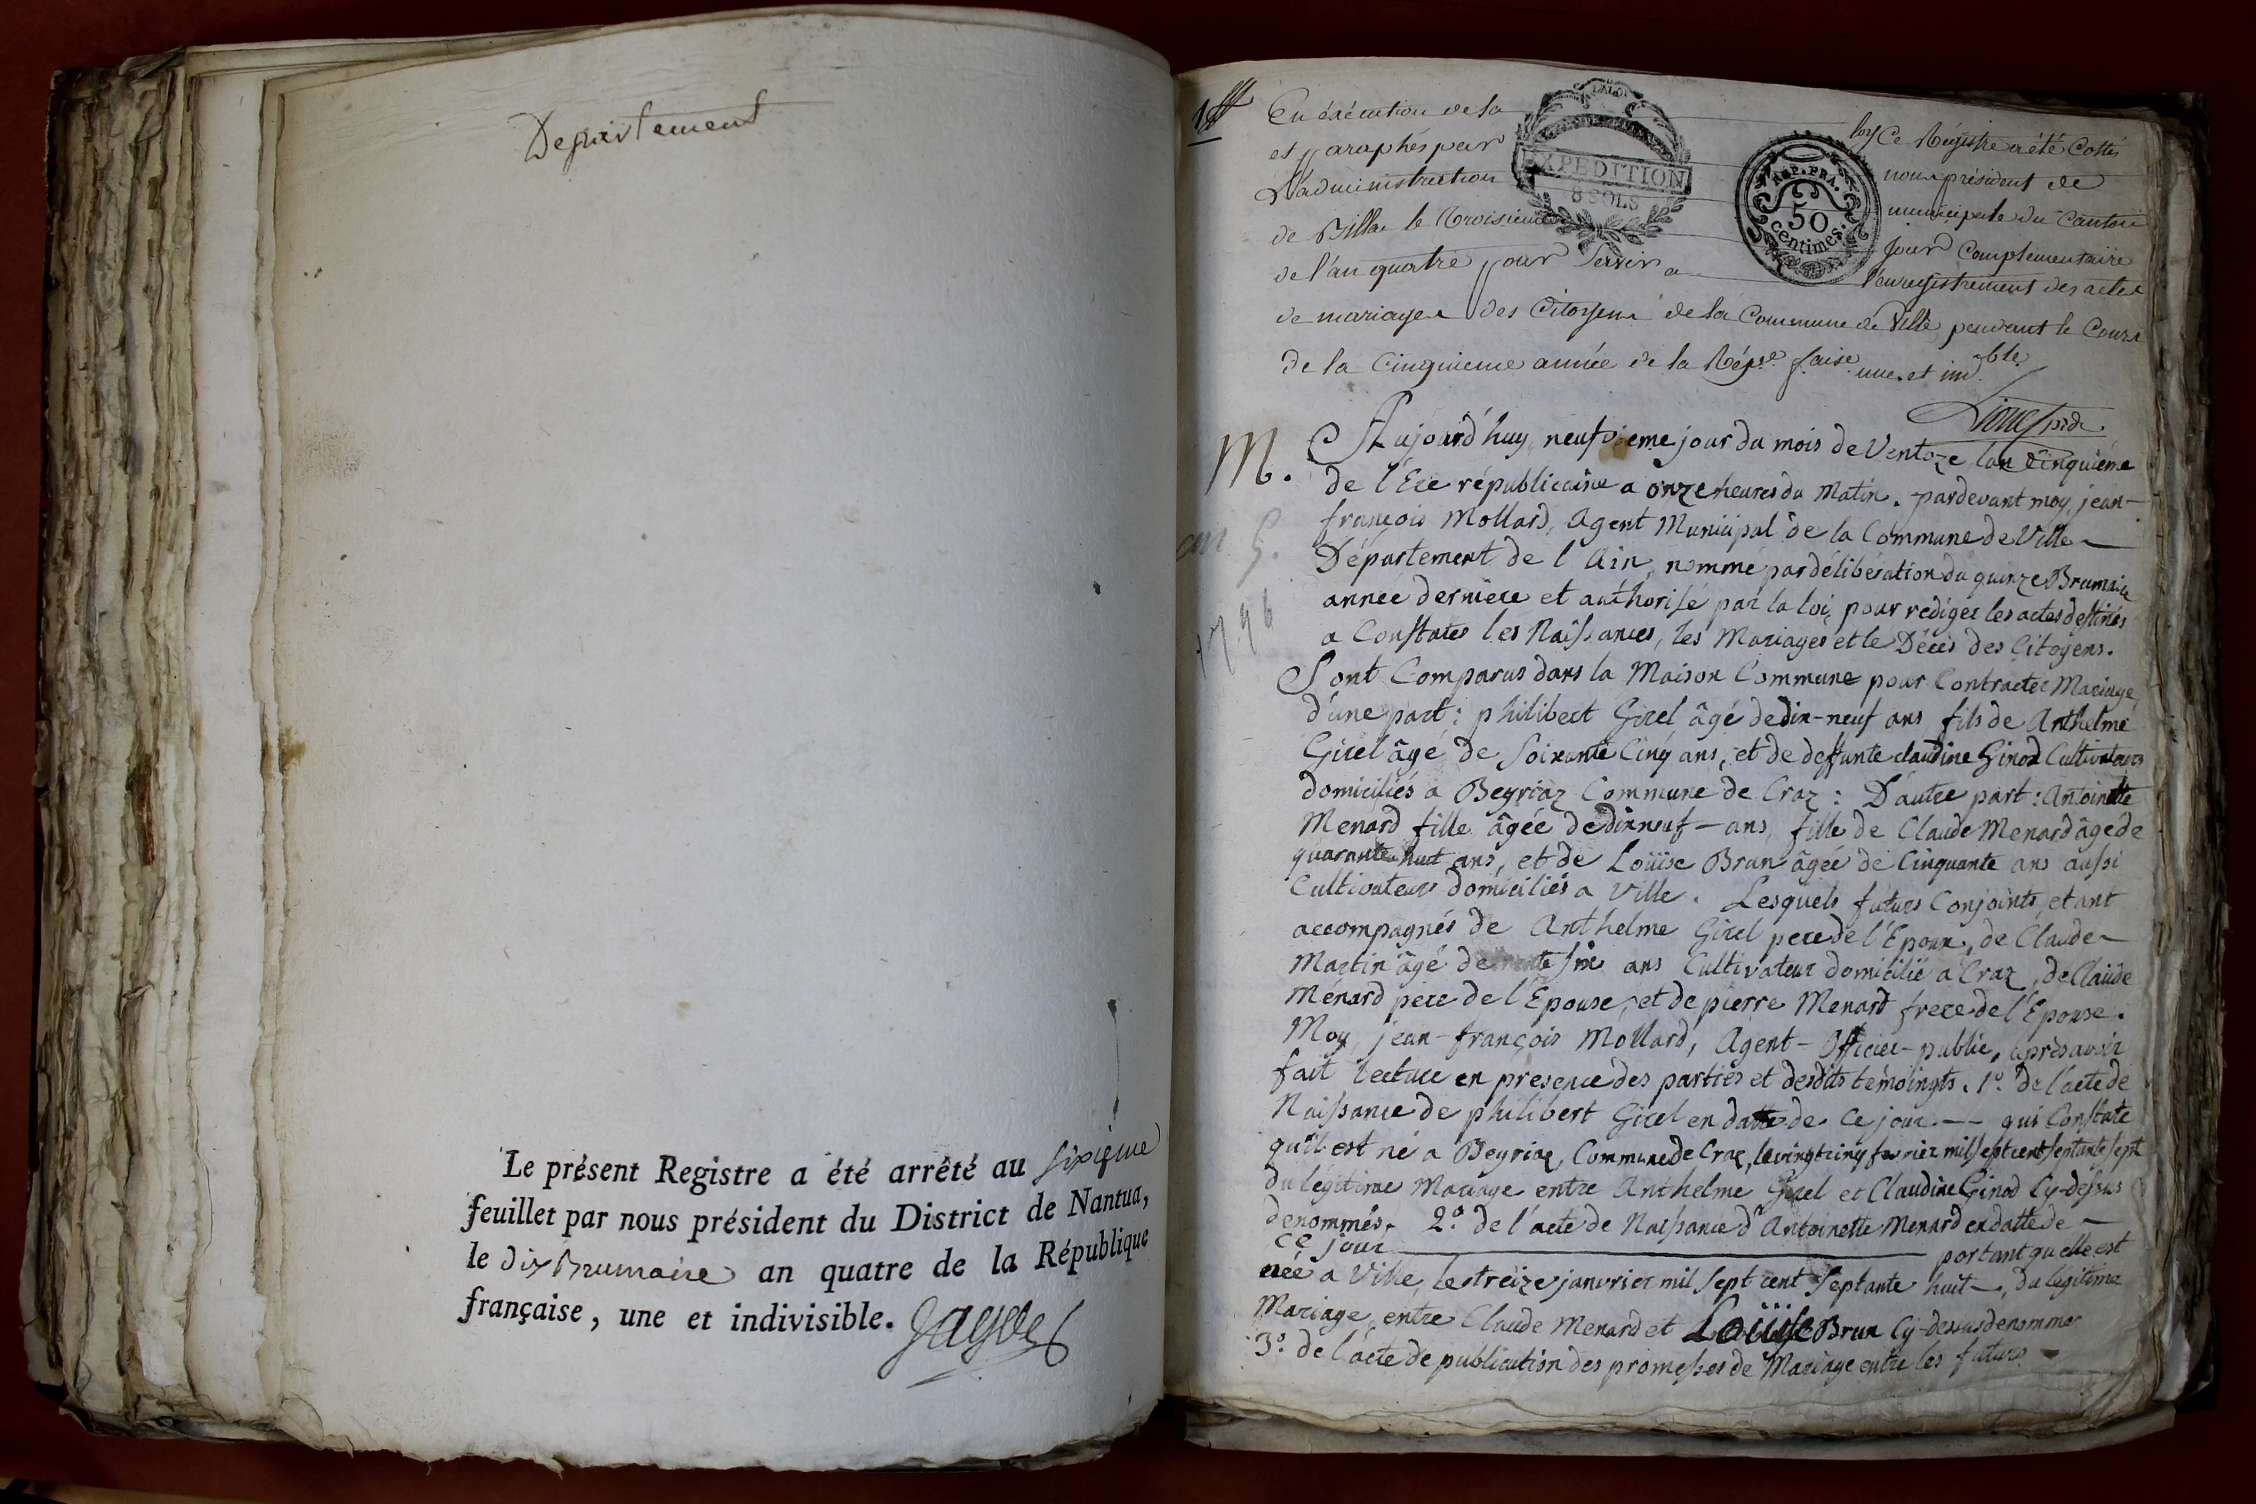 Departement
Le présent Registre a été arrêté au sixième
feuillet par nous président du District de Nantua,
le dix Brumaire an quatre de la République
française, une et indivisible.
En éxécution de la loy Ce Régistre a été Cottés
et paraphés par nous président de
L'administration municipale du Canton
de Billia le troisieme jour Complementaire
de l'an quatre pour servir a l'enregistrement des actes
de mariages des Citoyens de la Commune de Ville pendant le Cours
de la Cinquieme année de la Répse. faise. une et indble.
LA LOI
EXPEDITION
8 SOLS
REP. FRA.
50
centimes.
M.
an 5.
1796
Aujourd'huy neufvieme jour du mois de Ventoze, l'an Cinquiéme
de l'Ere républicaine a onze heures du Matin. pardevant moy, jean-
françois Mollard, Agent Municipal de la Commune de Ville
Département de l'Ain, nommé par délibération du quinze Brumaire
année derniere et authorisé par la loi, pour rediger les actes destinés
a Constater les Naissances, les Mariages et le Décès des Citoyens.
Sont Comparus dans la Maison Commune pour Contracter Mariage
d'une part: philibert Girel âgé de dix-neuf ans fils de Anthelme
Girel âgé de Soixante Cinq ans, et de deffunte claudine Ginod Cultivateurs
domiciliés a Beyriaz Commune de Craz: D'autre part: Antoinette
Menard fille âgée de dix neuf ans, fille de Claude Menard âgé de
quarante huit ans, et de Loüise Brun âgée de Cinquante ans aussi
Cultivateurs domiciliés a Ville. Lesquels futurs Conjoints, etant
accompagnés de Anthelme Girel pere de l'Epoux, de Claude
Martin âgé de trente six ans Cultivateur domicilié a Craz, de Claude
Ménard pere de l'Epouse, et de pierre Menard frere de l'Epouse.
Moy, jean-françois Mollard, Agent-Officier-public, après avoir
fait lecture en presence des parties et desdits témoingts. 1º. de l'acte de
Naissance de philibert Girel en datte de ce jour — qui Constate
qu'il est né a Beyriaz, Commune de Craz, le vingt cinq fevrier mil sept cent septante sept
du legitime Mariage entre Anthelme Girel et Claudine Ginod Cy-dessus
denommés. 2º. de l'acte de Naissance d'Antoinette Menard en datte de
ce jour — portant qu'elle est
née a Ville, le treize janvrier mil sept cent septante huit, du légitime
Mariage entre Claude Menard et Loüise Brun Cy-dessus denommés
3º. de l'acte de publication des promesses de Mariage entre les futurs